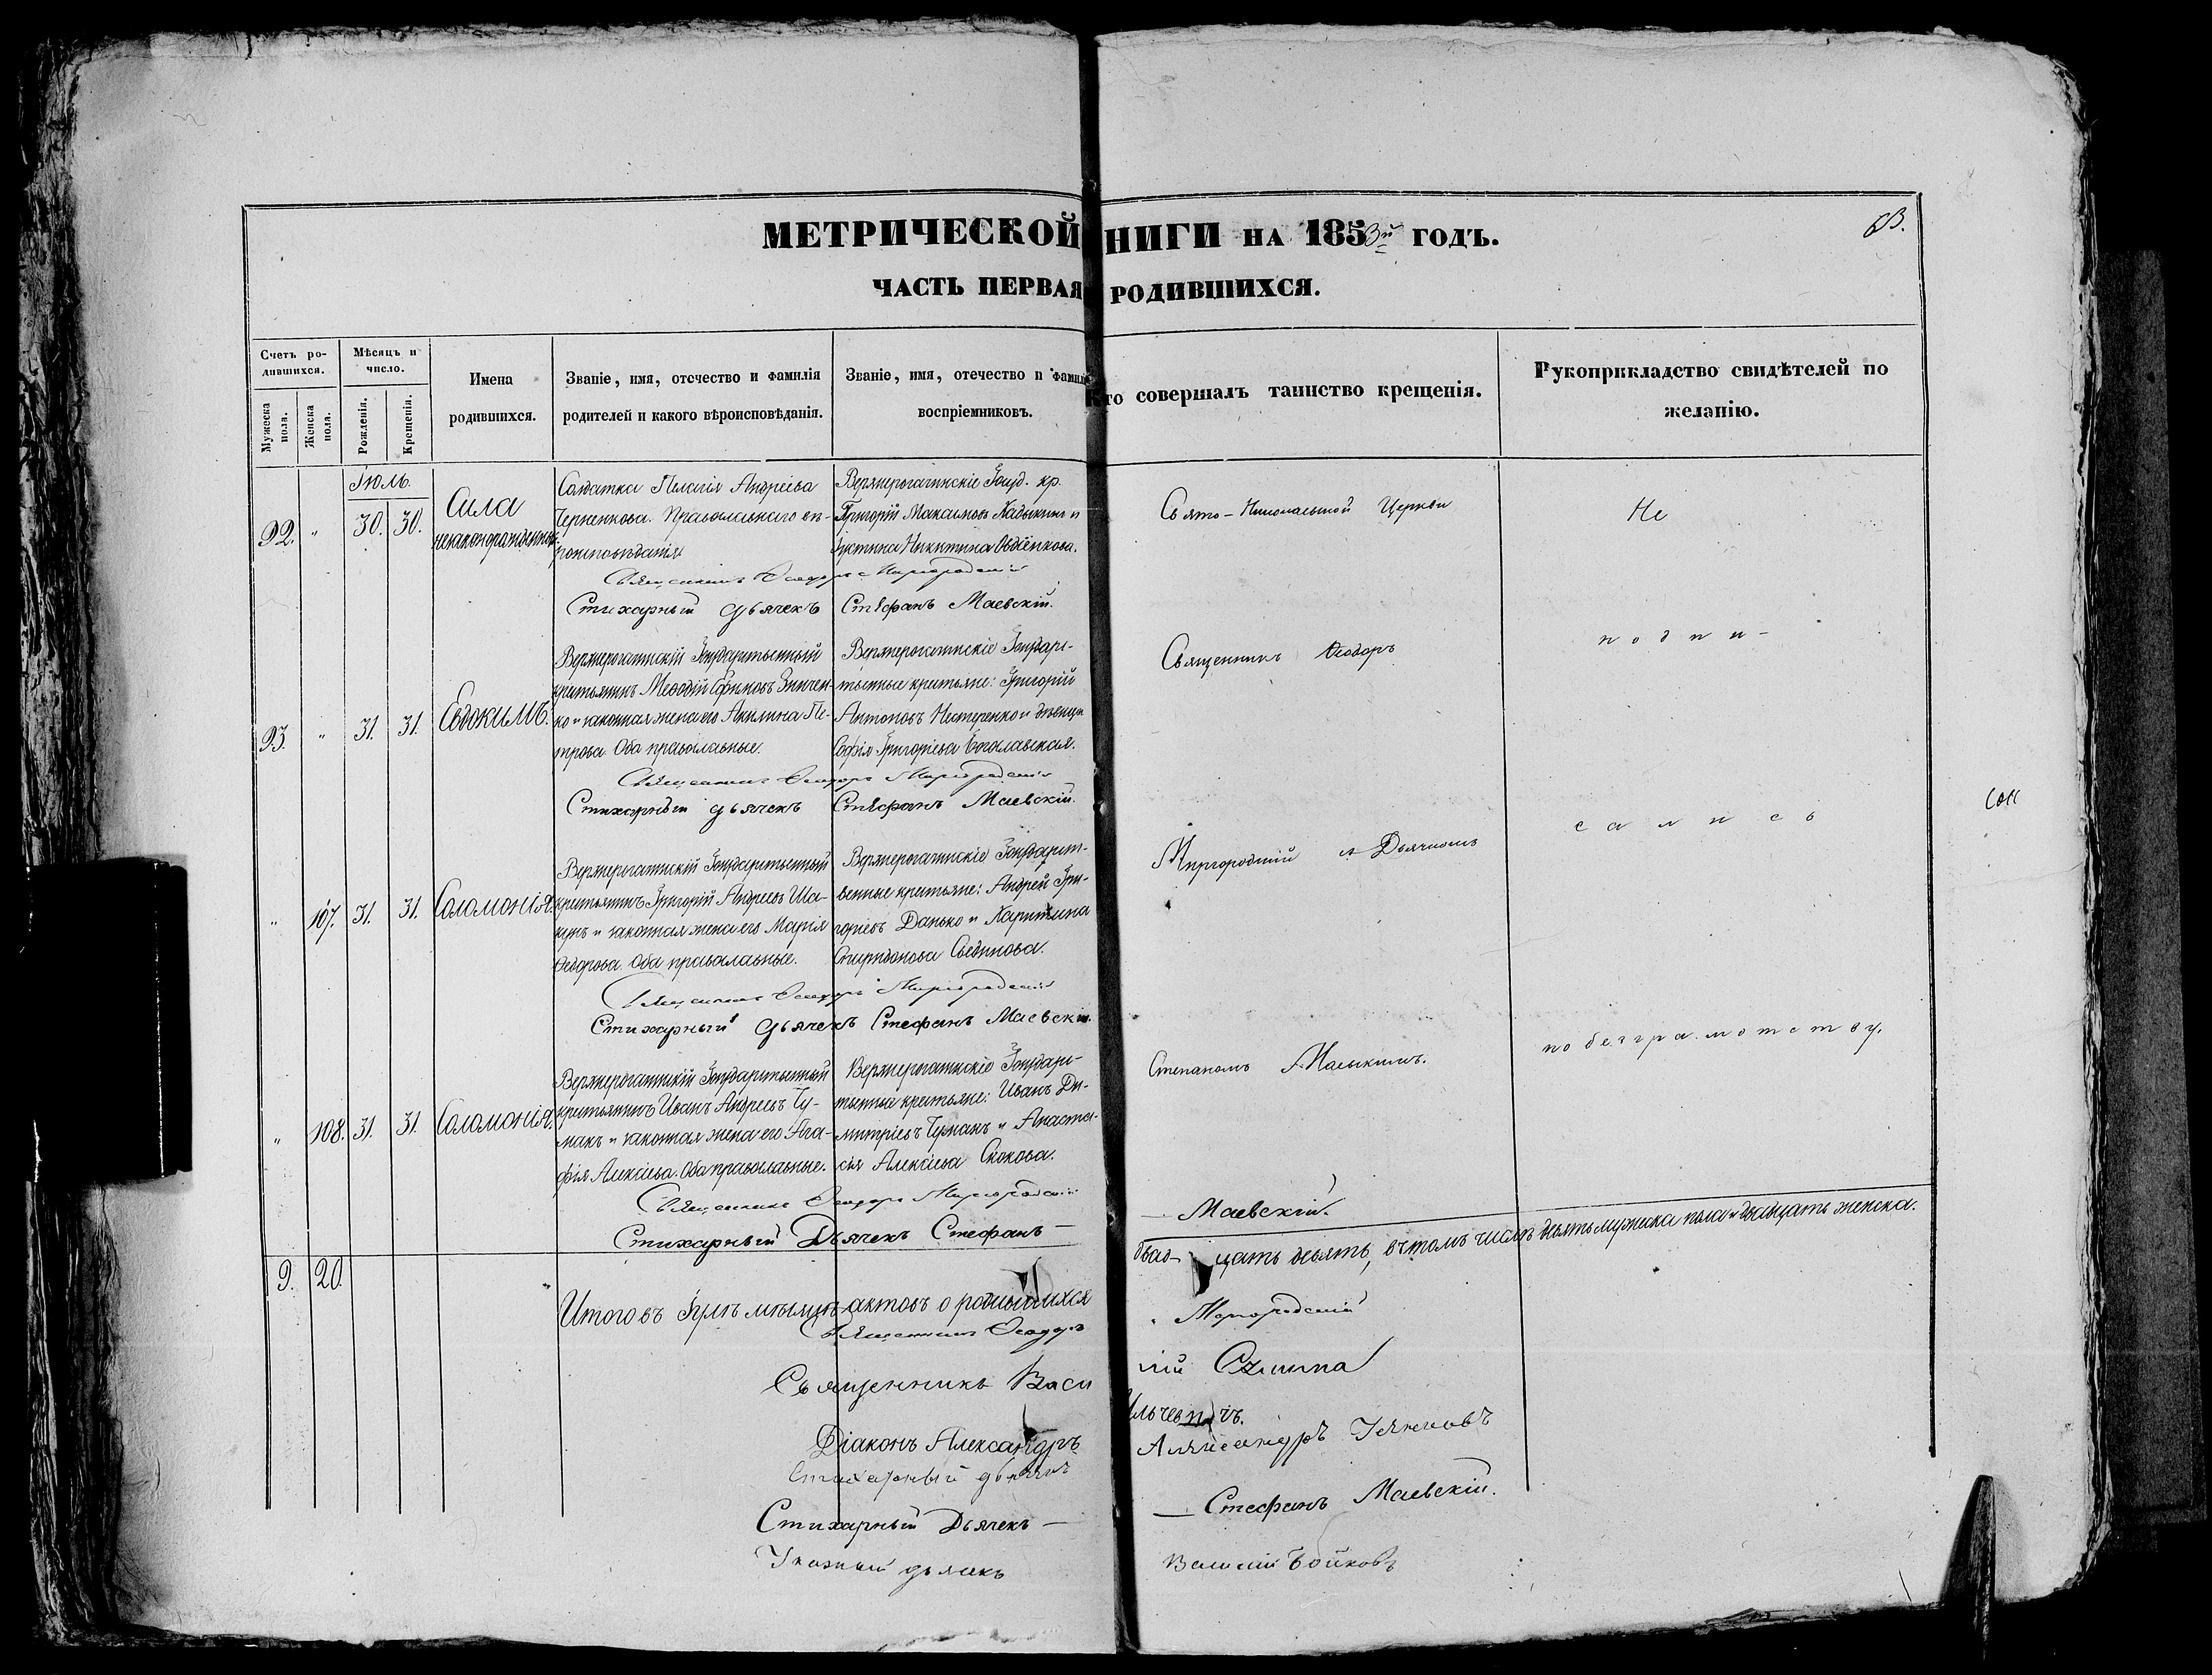 МЕТРИЧЕСКОЙ КНИГИ НА 1853й ГОДЪ.
ЧАСТЬ ПЕРВАЯ РОДИВШИХСЯ.
Счетъ ро-
дившихся.
Мужеска пола.
Женска пола.
Мѣсяцъ и
число.
Рожденія.
Крещенія.
Имена
родившихся.
Званіе, имя, отечество и фамилія
родителей и какого вѣроисповѣданія.
Званіе, имя, отечество и фамилія
воспріемниковъ.
Кто совершалъ таинство крещенія.
Рукоприкладство свидѣтелей по
желанію.
Іюль.
92. " 30. 30.
Сила
незаконорожденный.
Солдатка Пелагія Андреева
Черненкова. Православнаго вѣ-
роисповѣданія
Верхнерогачинскіе Госуд. кр.
Григорій Максимовъ Кадыкинъ и
Іустина Никитина Овдѣенкова.
Священникъ Ѳеодоръ Миргородскій
Стихарный дьячекъ Стефанъ Маевскій.
93. " 31. 31.
Евдокимъ.
Верхнерогачинскій Государственный
крестьянинъ Меѳодій Ефимовъ Зинчен-
ко и законная жена его Акилина Пе-
трова. Оба православные.
Верхнерогачинскіе Государс-
твенные крестьяне: Григорій
Антоновъ Нестеренко и дѣвица
Софія Григорьева Богославская.
Священникъ Ѳеодоръ Миргородскій
Стихарный дьячекъ Стефанъ Маевскій.
" 107. 31. 31.
Соломонія.
Верхнерогачинскій Государственный
крестьянинъ Григорій Андреевъ Ша-
кунъ и законная жена его Марія
Ѳедорова. Оба православные.
Верхнерогачинскіе Государст-
венные крестьяне: Андрей Гри-
горіевъ Данько и Харитина
Спиридонова
Священникъ Ѳеодоръ Миргородскій
Стихарный дьячекъ Стефанъ Маевскій.
" 108. 31. 31.
Соломонія.
Верхнерогачинскій Государственный
крестьянинъ Иванъ Андреевъ Чу-
макъ и законная жена его Ага-
фія Алексіева. Оба православные.
Верхнерогачинскіе Государс-
твенные крестьяне: Иванъ Ди-
митріевъ Чумакъ и Анаста-
сія Алексіева Скокова.
Священникъ Ѳеодоръ Миргородскій
Стихарный Дьячекъ Стефанъ — — Маевскій.
Свято-Николаевской Церкви
Священникъ Ѳеодоръ
Миргородскій съ Дьячкомъ
Степаномъ Маевскимъ.
Не
подпи-
сались
по безграмотству.
9. 20.
Итого въ Іулѣ мѣсяцѣ актовъ о родившихся двад- цать девять, в томъ числѣ девять мужеска пола и двадцать женска.
Священникъ Ѳеодоръ Миргородскій
Священникъ Васи лій
Діаконъ Александръ Ильчевичъ.
Стихарный дьячекъ Александръ
Стихарный Дьячекъ — — Стефанъ Маевскій.
Указный дьячекъ Василій Бойковъ